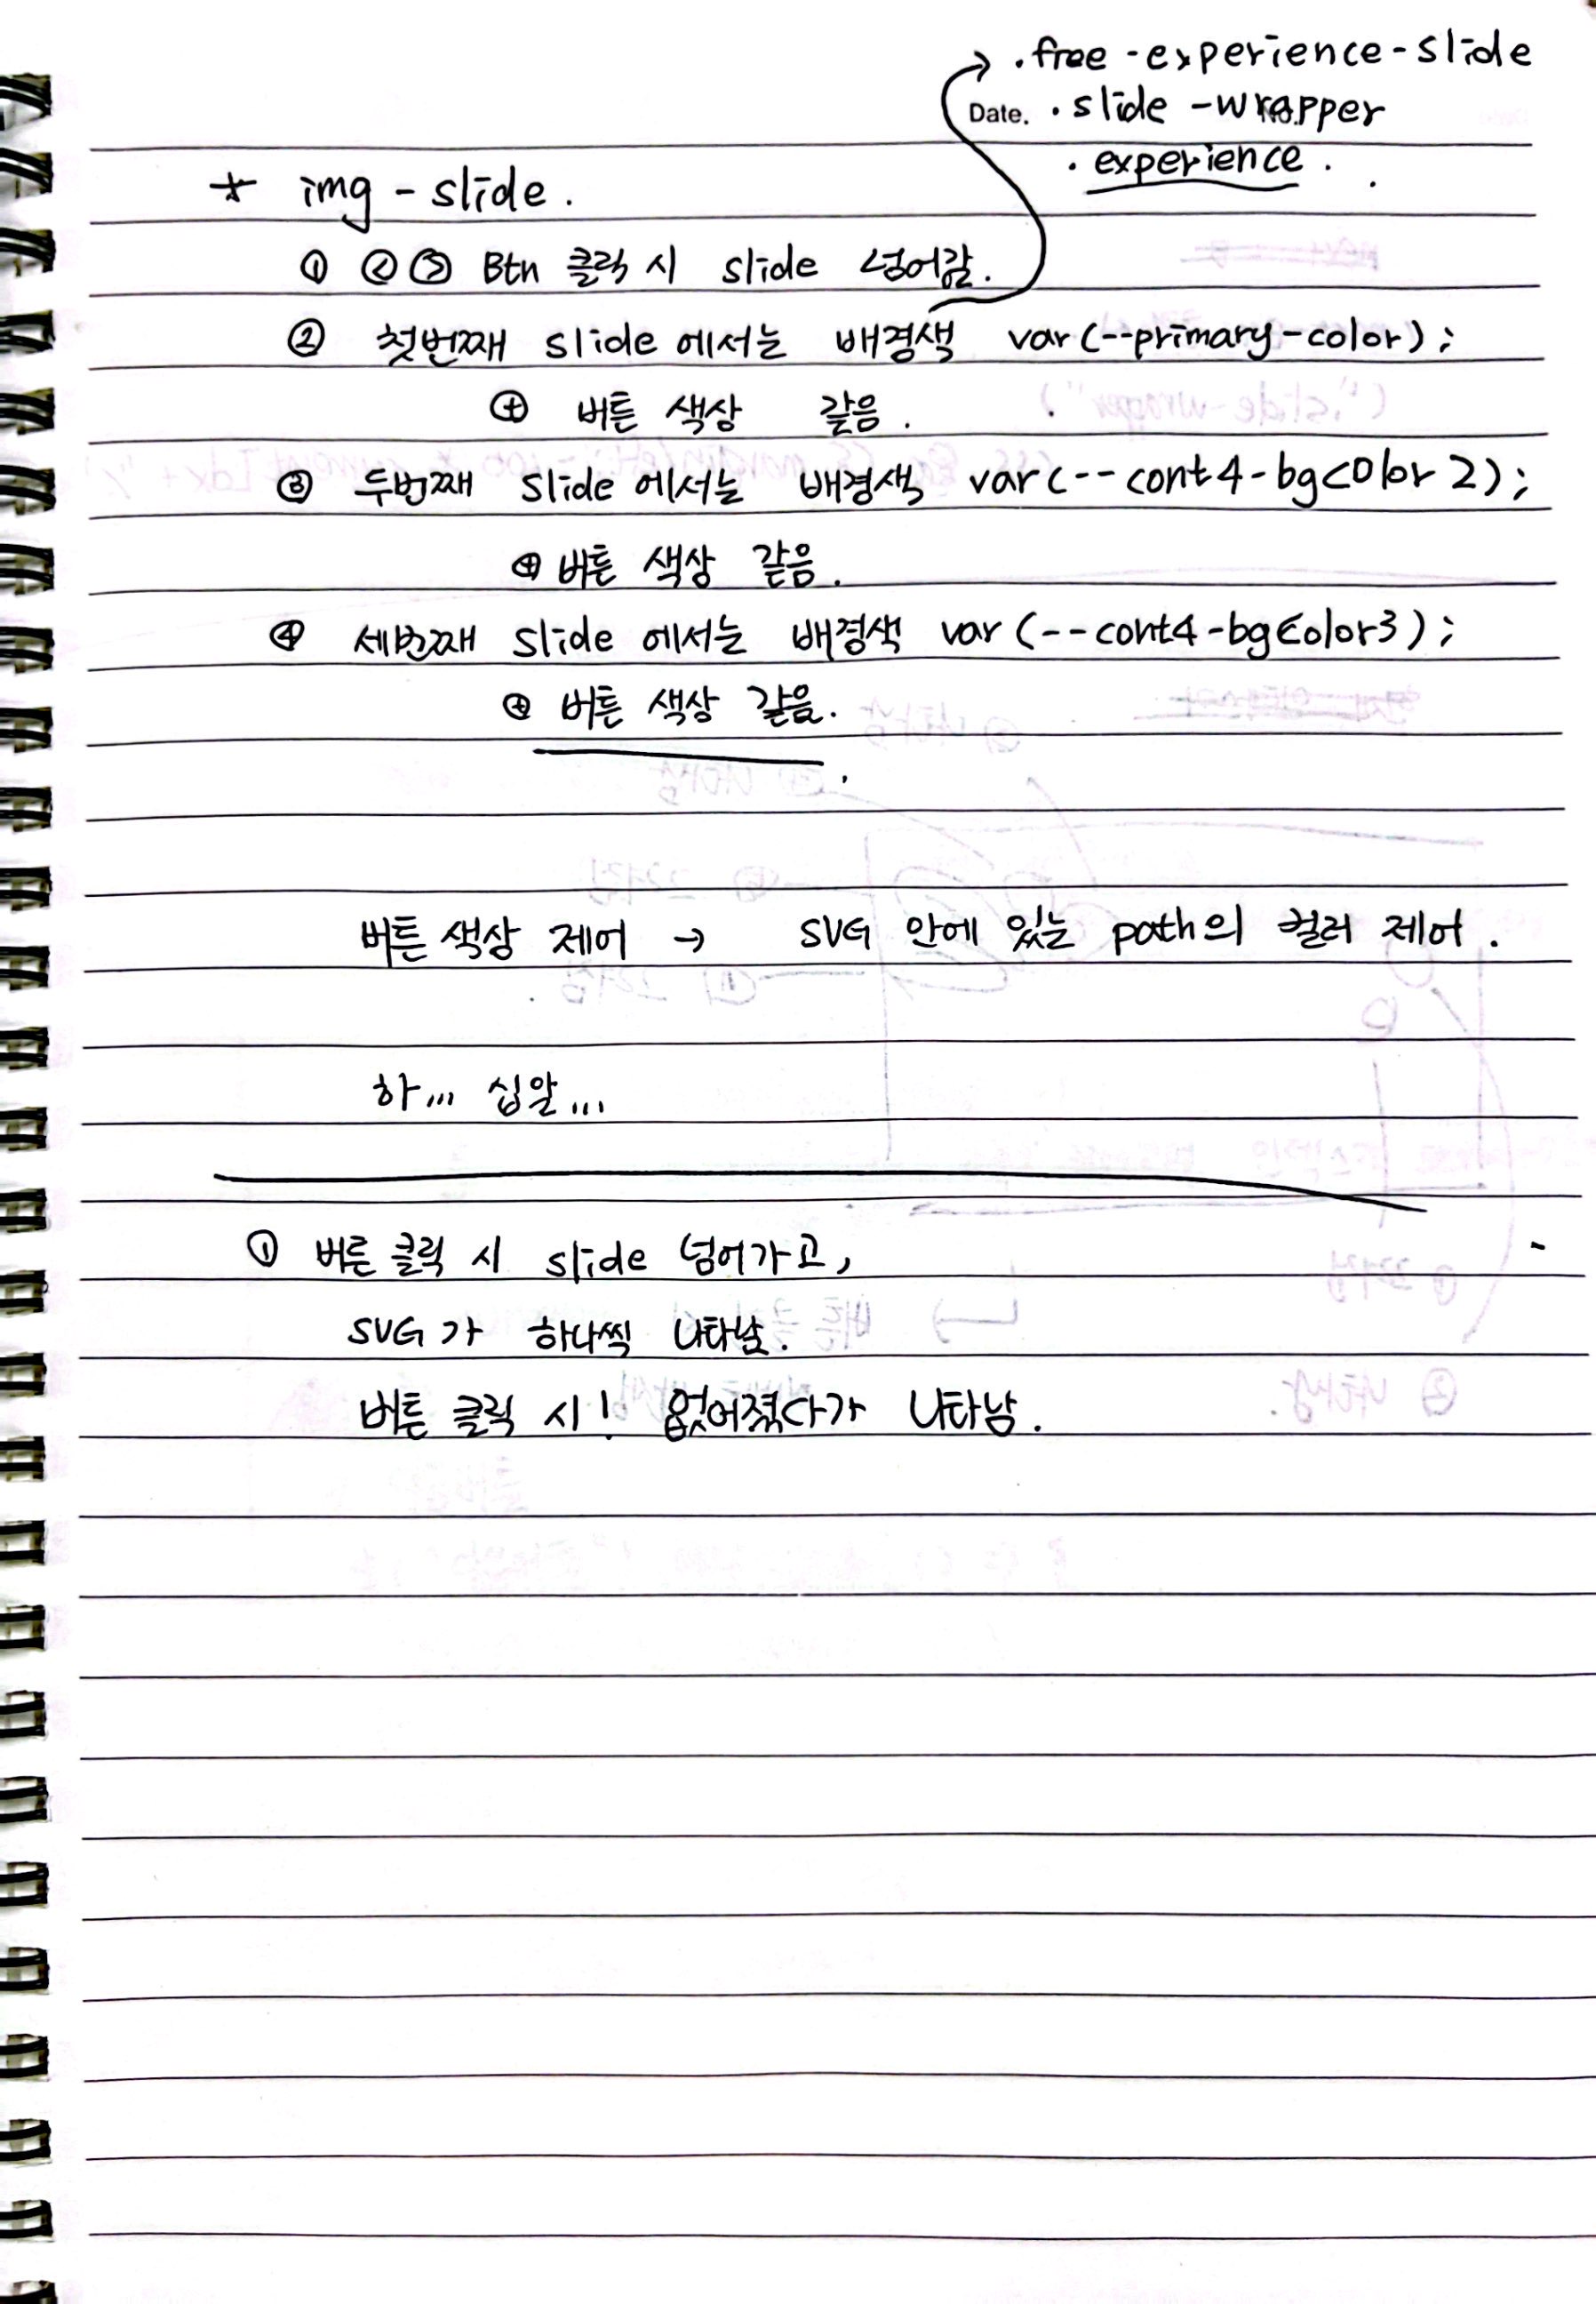 .free-experience-slide
Date. No.
.slide-wrapper
.experience.
* img-slide.
① < > Btn 클릭 시 slide 넘어감.
② 첫번째 slide에서는 배경색 var(--primary-color);
⊕ 버튼 색상 같음.
③ 두번째 slide에서는 배경색 var(--cont4-bgcolor2);
⊕ 버튼 색상 같음.
④ 세번째 slide에서는 배경색 var(--cont4-bgcolor3);
⊕ 버튼 색상 같음.
버튼 색상 제어 → SVG 안에 있는 path의 컬러 제어.
하... 십알...
① 버튼 클릭 시 slide 넘어가고,
SVG가 하나씩 나타남.
버튼 클릭 시! 없어졌다가 나타남.